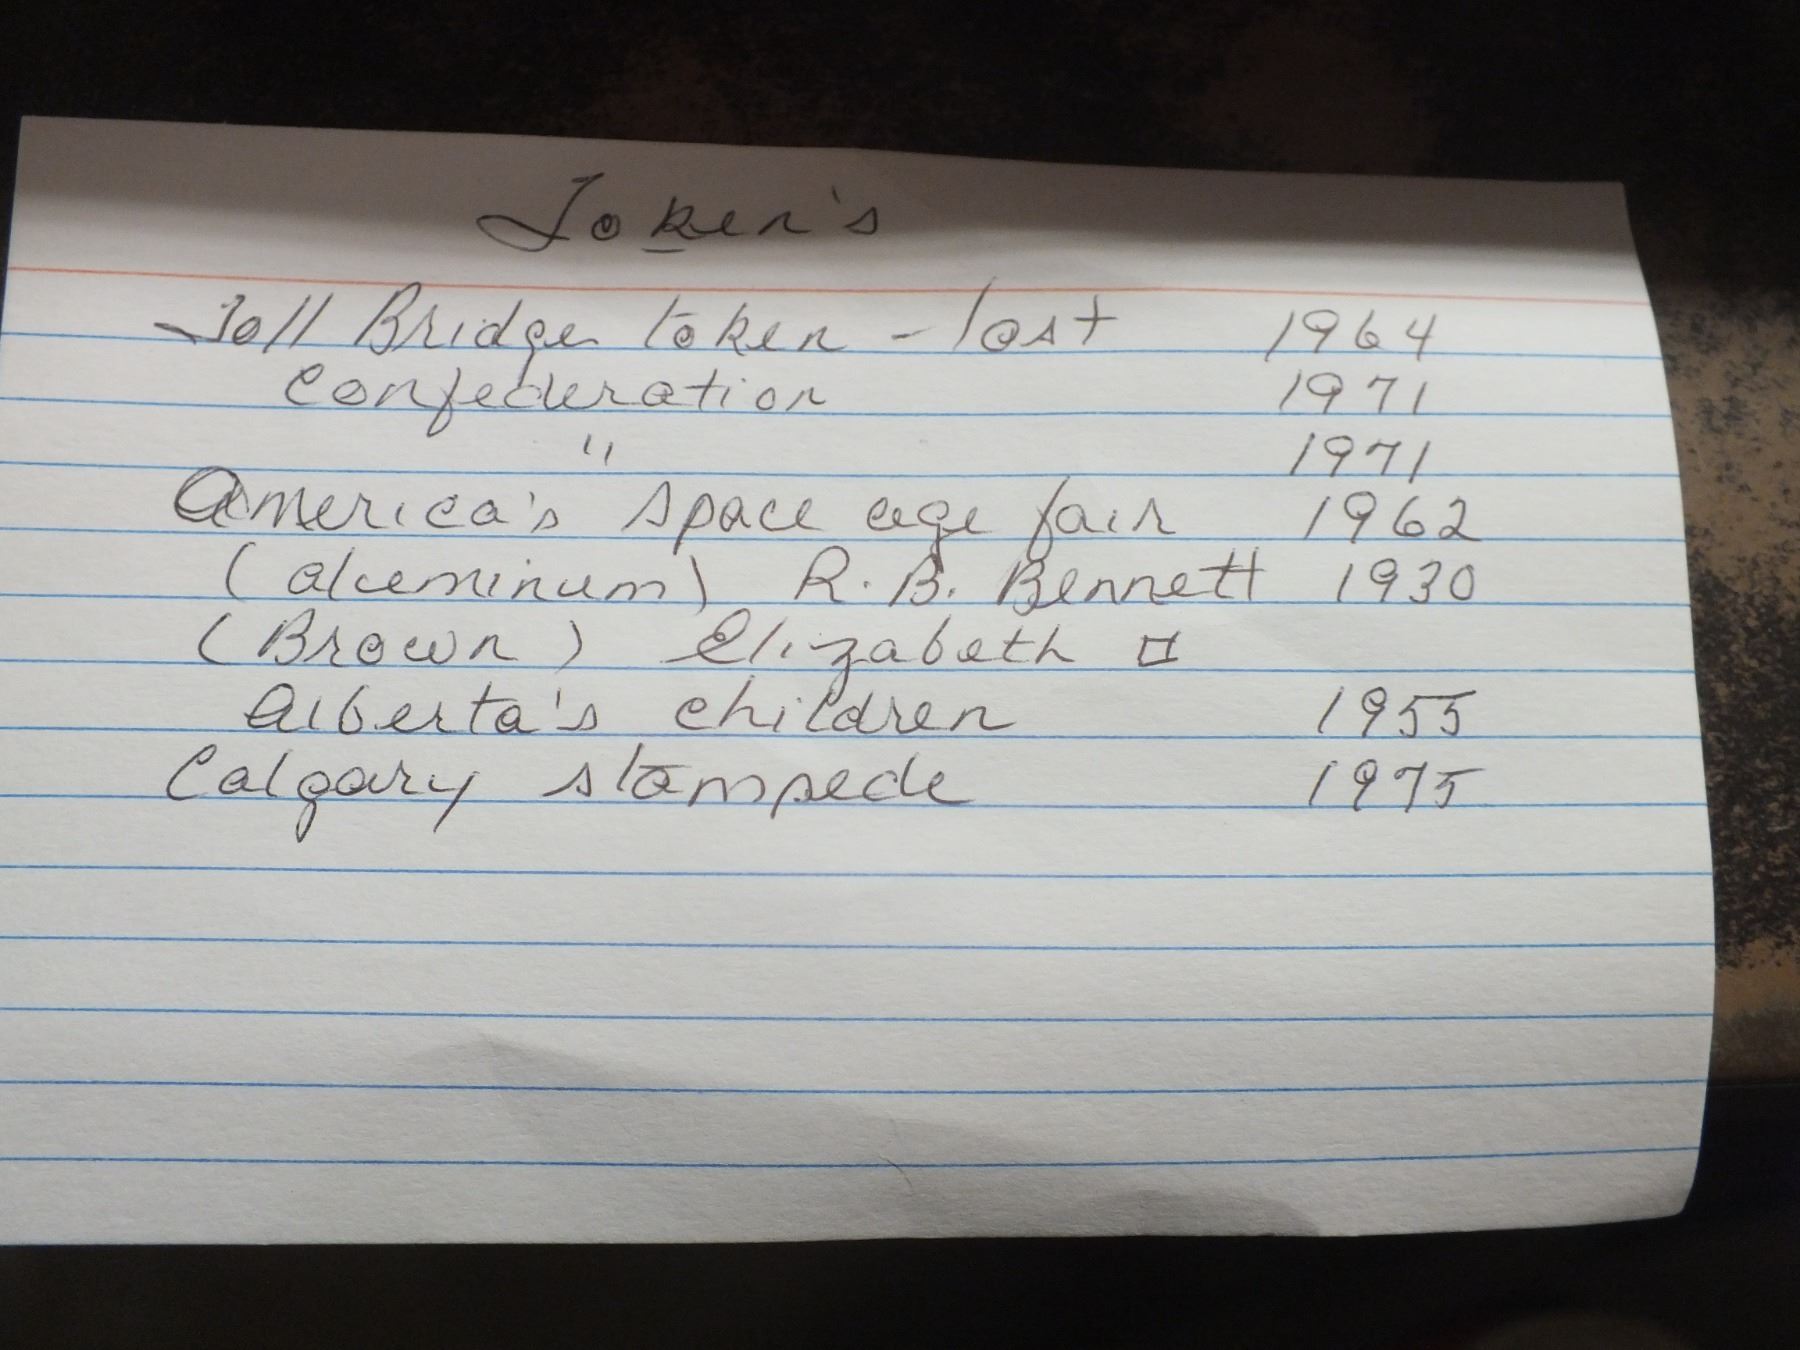 Token's
Toll Bridge token - last 1964
Confederation 1971
" 1971
America's space age fair 1962
(aluminum) R. B. Bennett 1930
(Brown) Elizabeth II
Alberta's children 1955
Calgary stampede 1975